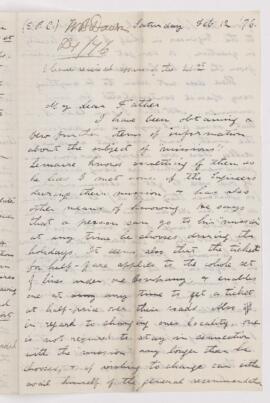 (E.P.C.) Saturday Feb. 12 /76.
21/76
I have received yours of the
My dear Father
I have been obtaining a
few further items of information
about the subject of "missions".
Lemaire knows something of them as
he has met some of the Engineers
during their mission, & has also
other means of knowing. He says
that a person can go to his "mission"
at any time he chooses during the
holidays. It seems also that the ticket
for half-fare applies to the whole set
of lines under one Company, & enables
one at any time to get a ticket
at half-price over their roads. Also
in regard to changing ones locality, one
is not required to stay in connection
with the "mission" any longer than he
chooses, & if wishing to change can either
avail himself of the general recommendation